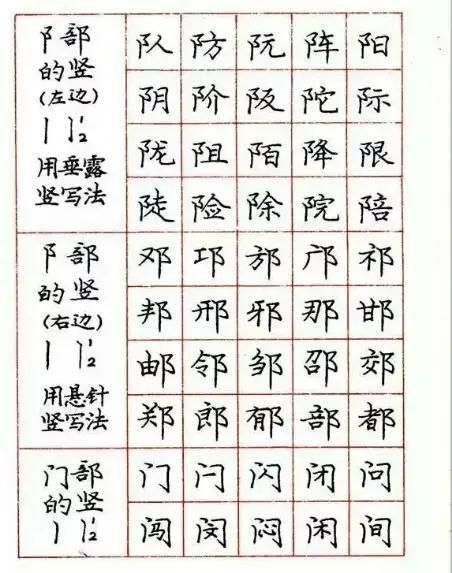 阝部
的竖
(左边)
丨 丨½
用垂露
竖写法
队 防 阮 阵 阳
阴 阶 阪 陀 际
陇 阻 陌 降 限
陡 险 除 院 陪
阝部
的竖
(右边)
丨 丨½
用悬针
竖写法
邓 邛 邡 邝 祁
邦 邢 邪 那 邯
邮 邻 邹 邵 郊
郑 郎 郁 部 都
门部
的竖
丨 丨½
门 闩 闪 闭 问
闯 闵 闷 闲 间